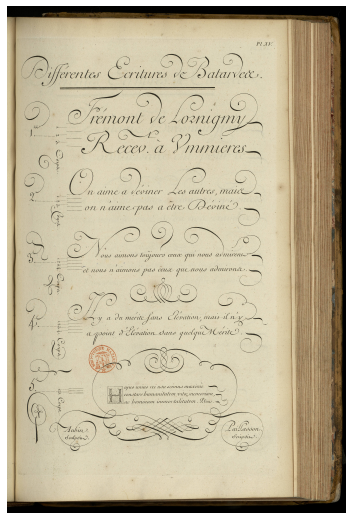 Pl. XV.
Differentes Ecritures de Batardes.
Frémont de Lornigny
Recev. a Vimmieres
On aime a deviner Les autres, mais
on n'aime pas a être Deviné
Nous aimons toujours ceux qui nous admirent
et nous n'aimons pas ceux que nous admirons.
Il y a du merite sans Elévation, mais il n'y
a point d'Elévation sans quelque Mérite
immortalitatem
Aubin
Paillasson